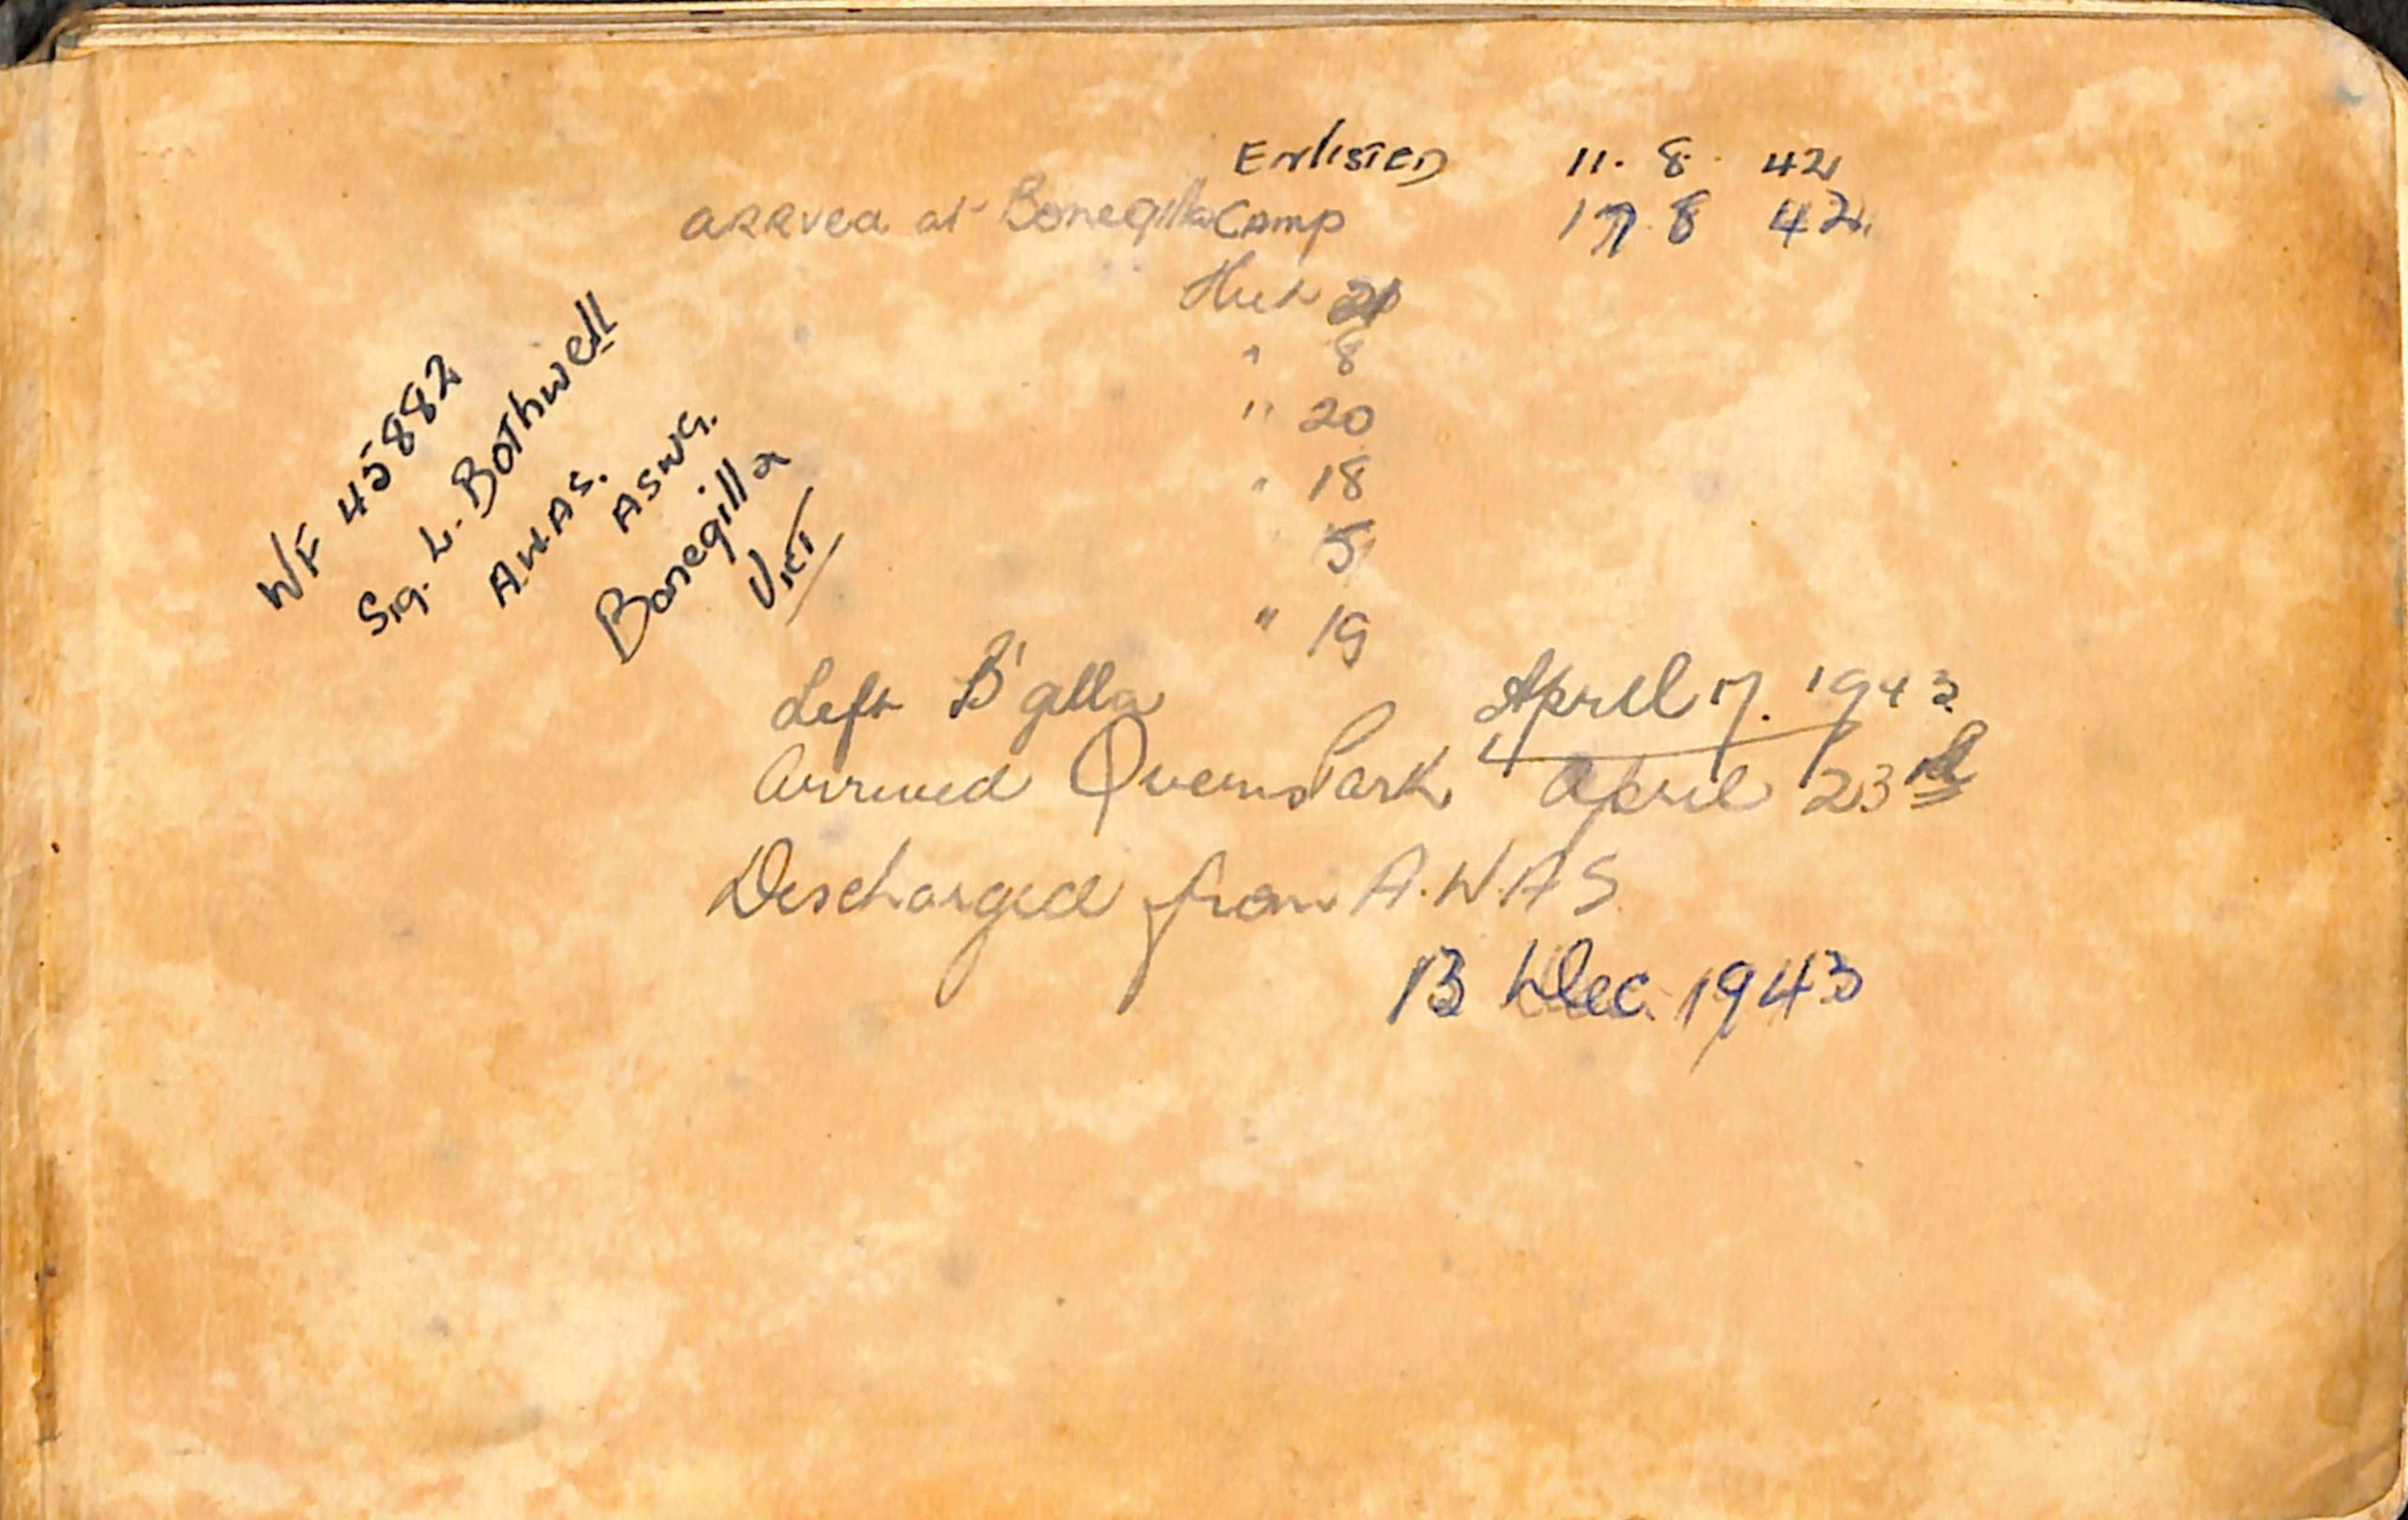 Enlisted 11. 8. 42
arrved at Bonegilla Camp 17. 8 42.
Hut 21
" 8
" 20
" 18
" 5
" 19
WF 45882
Sig. L. Bothwell
A.W.A.S.
ASWG.
Bonegilla
Vict
Left B'gilla April 7. 1943
Arrived Queens Park April 23rd
Discharged from A.W.A.S
13 Dec. 1943